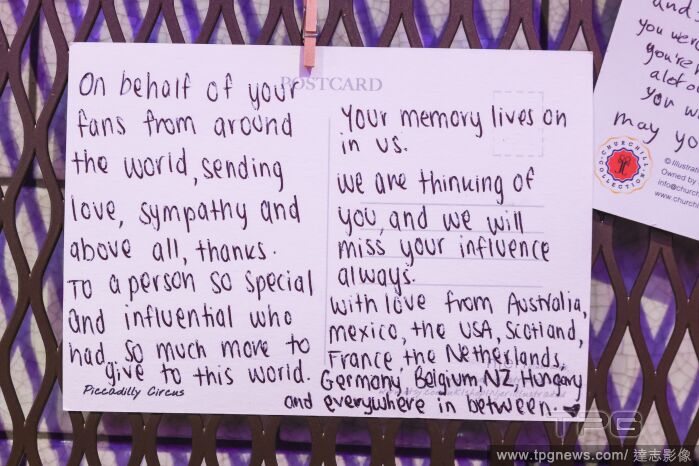 POSTCARD
On behalf of your
fans from around
the world, sending
love, sympathy and
above all, thanks.
To a person so special
and influential who
had so much more to
give to this world.
Piccadilly Circus
Your memory lives on
in us.
We are thinking of
you, and we will
miss your influence
always.
With love from Australia,
mexico, the USA, Scotland,
France, the Netherlands,
Germany, Belgium, NZ, Hungary
and everywhere in between.
and
you were
you're
may yo
CHURCHILL
COLLECTION
© Illustrat
Owned by
info@church
www.churchi
TPG
www.tpgnews.com/ 達志影像